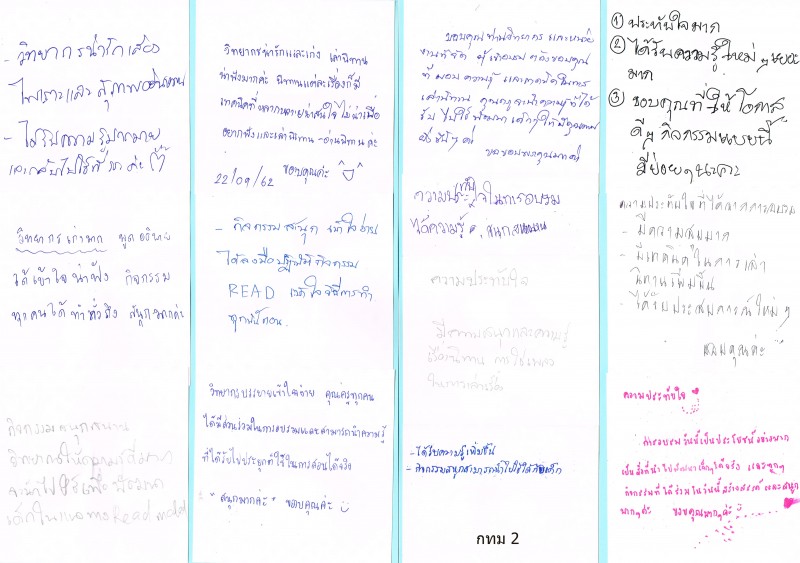 - วิทยากรน่ารักเสียง
ไพเราะและสุภาพอ่อนหวาน
- ได้รับความรู้มากมาย
และกลับไปใช้ที่ ค่ะ
วิทยากรเก่งมาก พูดอธิบาย
ได้เข้าใจ น่าฟัง กิจกรรม
ทุกคนได้ทำทั่วถึง สนุกมากค่ะ
กิจกรรมสนุกสนาน
วิทยากรให้ความรู้ดีมาก
จะนำไปใช้เพื่อพัฒนา
เด็กในแนวทาง Read
วิทยากรน่ารักและเก่ง เล่านิทาน
น่าฟังมากค่ะ นิทานแต่ละเรื่องก็มี
เทคนิคที่หลากหลายน่าสนใจ ไม่น่าเบื่อ
อยากฟังและเล่านิทาน - อ่านนิทานค่ะ
ขอบคุณค่ะ
22/09/62
- กิจกรรมสนุก เข้าใจง่าย
ได้ลงมือปฏิบัติกิจกรรม
READ เข้าใจวิธีการทำ
ทุกขั้นตอน.
วิทยากรบรรยายเข้าใจง่าย คุณครูทุกคน
ได้มีส่วนร่วมในการอบรมและสามารถนำความรู้
ที่ได้รับไปประยุกต์ใช้ในการสอนได้จริง
"สนุกมากค่ะ" ขอบคุณค่ะ
ขอบคุณท่านวิทยากร และหน่วย
งานที่จัด ขอบคุณ
ที่มอบความรู้ และเทคนิคในการ
เล่านิทาน คุณครูจะนำความรู้ที่ได้
รับ ไปใช้พัฒนาเด็กๆ ให้มีคุณภาพ
ยิ่งขึ้นๆ ค่ะ
ขอขอบพระคุณมากค่ะ
ความประทับใจในการอบรม
ได้ความรู้ , สนุกสนาน
ความประทับใจ
มีความสนุกและความรู้
เรื่องนิทาน การใช้เพลง
ในการเล่าเรื่อง
- ได้รับความรู้เพิ่มขึ้น
- กิจกรรมสนุกสามารถนำไปใช้ได้กับเด็ก
กทม 2
① ประทับใจมาก
② ได้รับความรู้ใหม่ๆเยอะ
มาก
③ ขอบคุณที่ให้โอกาส
ดีๆ กิจกรรมแบบนี้
มีบ่อยๆนะคะ
ความประทับใจที่ได้จากการอบรม
- มีความสุขมาก
- มีเทคนิคในการเล่า
นิทานเพิ่มขึ้น
- ได้รับประสบการณ์ใหม่ๆ
ขอบคุณค่ะ
ความประทับใจ
การอบรมวันนี้เป็นประโยชน์อย่างมาก
เป็นสิ่งที่นำไปพัฒนาเด็กๆได้จริง และทุกๆ
กิจกรรมที่ได้ร่วมในวันนี้สร้างสรรค์และสนุก
มากๆค่ะ ขอบคุณมากๆค่ะ